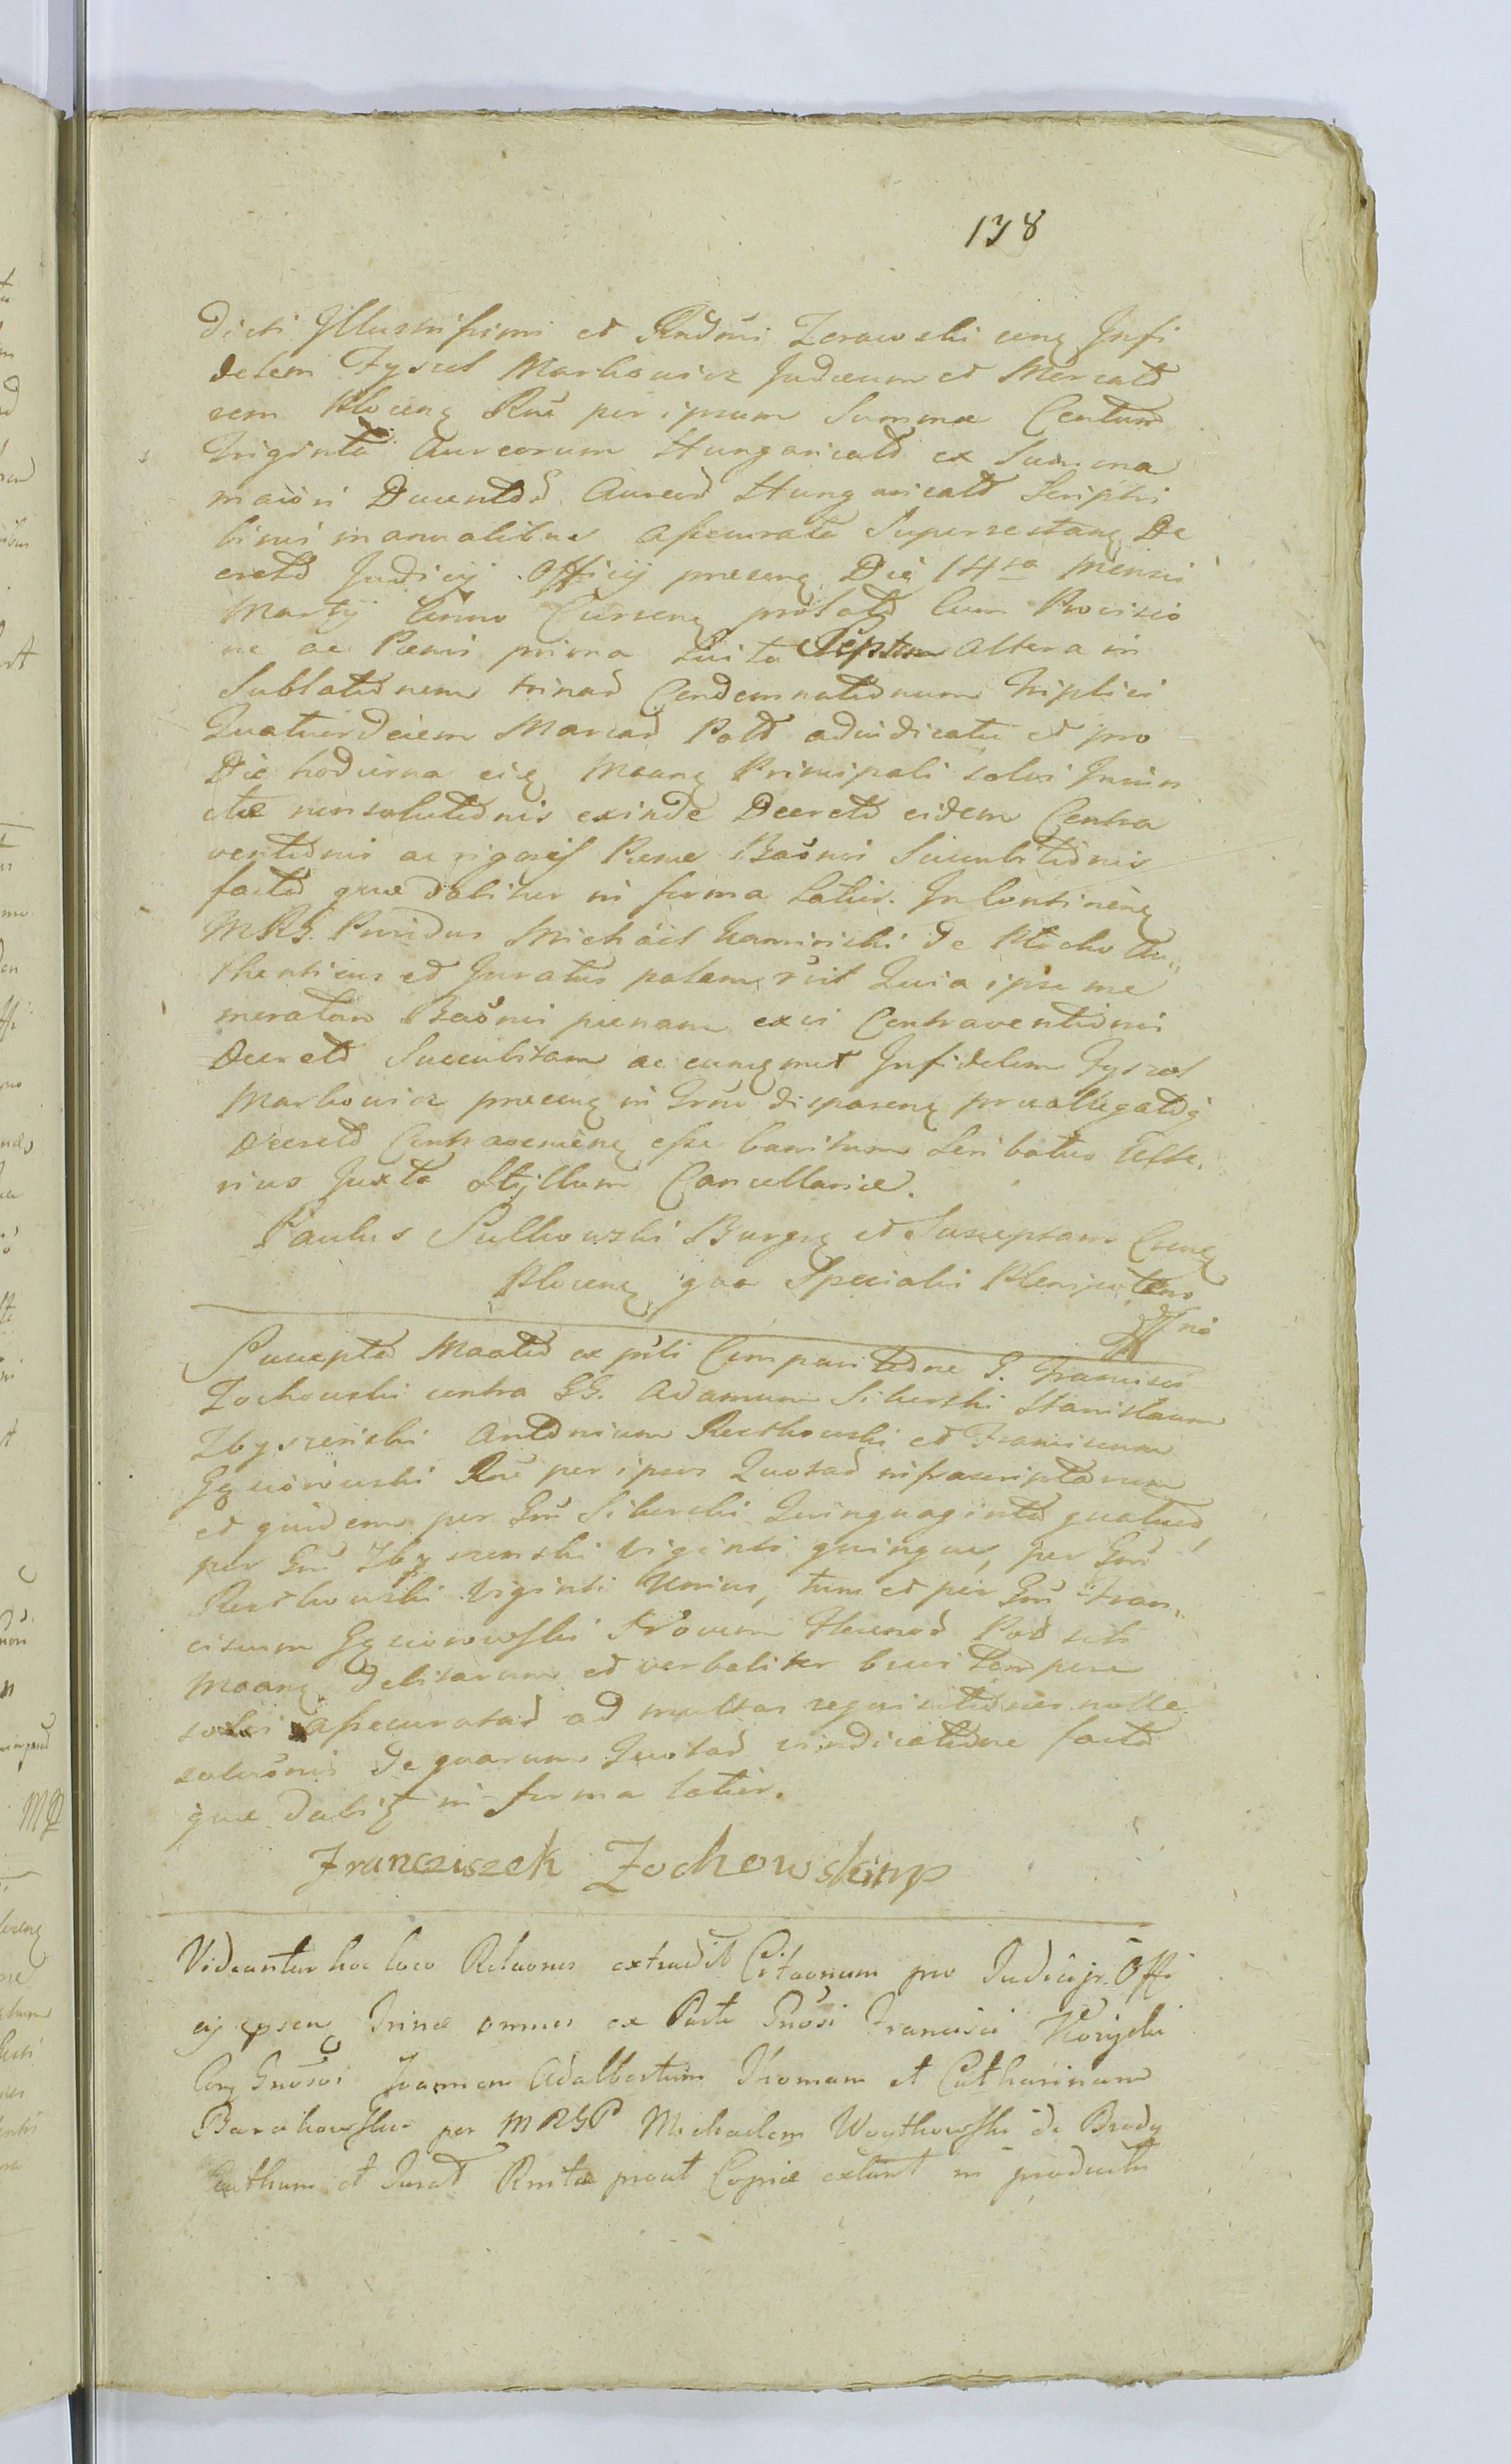 138
dicti Illustrissimi et Rndmi Zerawski cunq Infi
delem Fyszel Markowicz Judæum et Mercato
rem Plocenq Rne per ipsum Summæ Centum
Triginta Aureorum Hungaricalo ex Summa
maiori Ducento Aureo Hungaricalo Scripti
binis manualibus assecurata Superrestanq De
creto Judicij Officij præsenq Die 14ta Mensis
Martij Anno Cursenq prolato cum Provisio
ne ac Pænis prima luita altera in
Sublationem trinar Condemnationum Triplici
Quatuordecim Marcar Pold adiudicatæ et pro
Die hodierna eiq Moanq Principali solvi Iniun
ctæ nonsolutionis exinde Decreto eidem Contra
ventionis ac rigoris Pænæ Baõnis Succubitionis
facto quæ dabitur in forma latius. In Continenq
MRG. Providus Michäel Kaminski de Plocko Au„
thenticus et Juratus palam rvit Quia ipse me
moratam Baõnis pænam ex vi Contraventionis
Decreto Succubitam ac eunqmet Infidelem Fyszel
Markowicz præsenq in Grno disparenq præallegatoq
Decreto Contravenienq esse banitum Scribatur Ulte„
rius Juxta Styllum Cancellariæ.
Paulus Sulkowski Burgrq et Susceptans Cunq
Plocenq qua Specialis Plenipotens
Suscepta Moatio ex psti Comparitione G. Francisci
Zochowski contra GG. Adamum Siberski Stanislaum
Zbyszenski Antonium Rusthowski et Franciscum
Gąsiorowski Rne per ipsos Quotar infrascriptarum
et quidem per Gm Siberski Quinquaginta quatuor,
per Gm Zbyszenski viginti quinque, per Gm
Rusthowski viginti Unius, tum et per Gm Fran„
ciscum Gąsiorowski Novem Florenor Pol sibi
Moanq debitarum et verbaliter brevi tempore
solvi assecuratar ad multas requisitiones nolle
solvõnis de quarum Quotar vindicatione facto
quæ dabitq in forma latius.
Franciszek Zochowski mp
Videantur hoc loco Relaones extradit Citaonum pro Judicijs Offi
cij Trinæ omnes ex Parte Gnosi Francisci
Conq Gnosos Joannem Adalbertum Thomam et Catharinam
per MRGP Michaelem Woythowski de Brody
Authum et Jurat Rnitæ prout Copiæ extant in productu